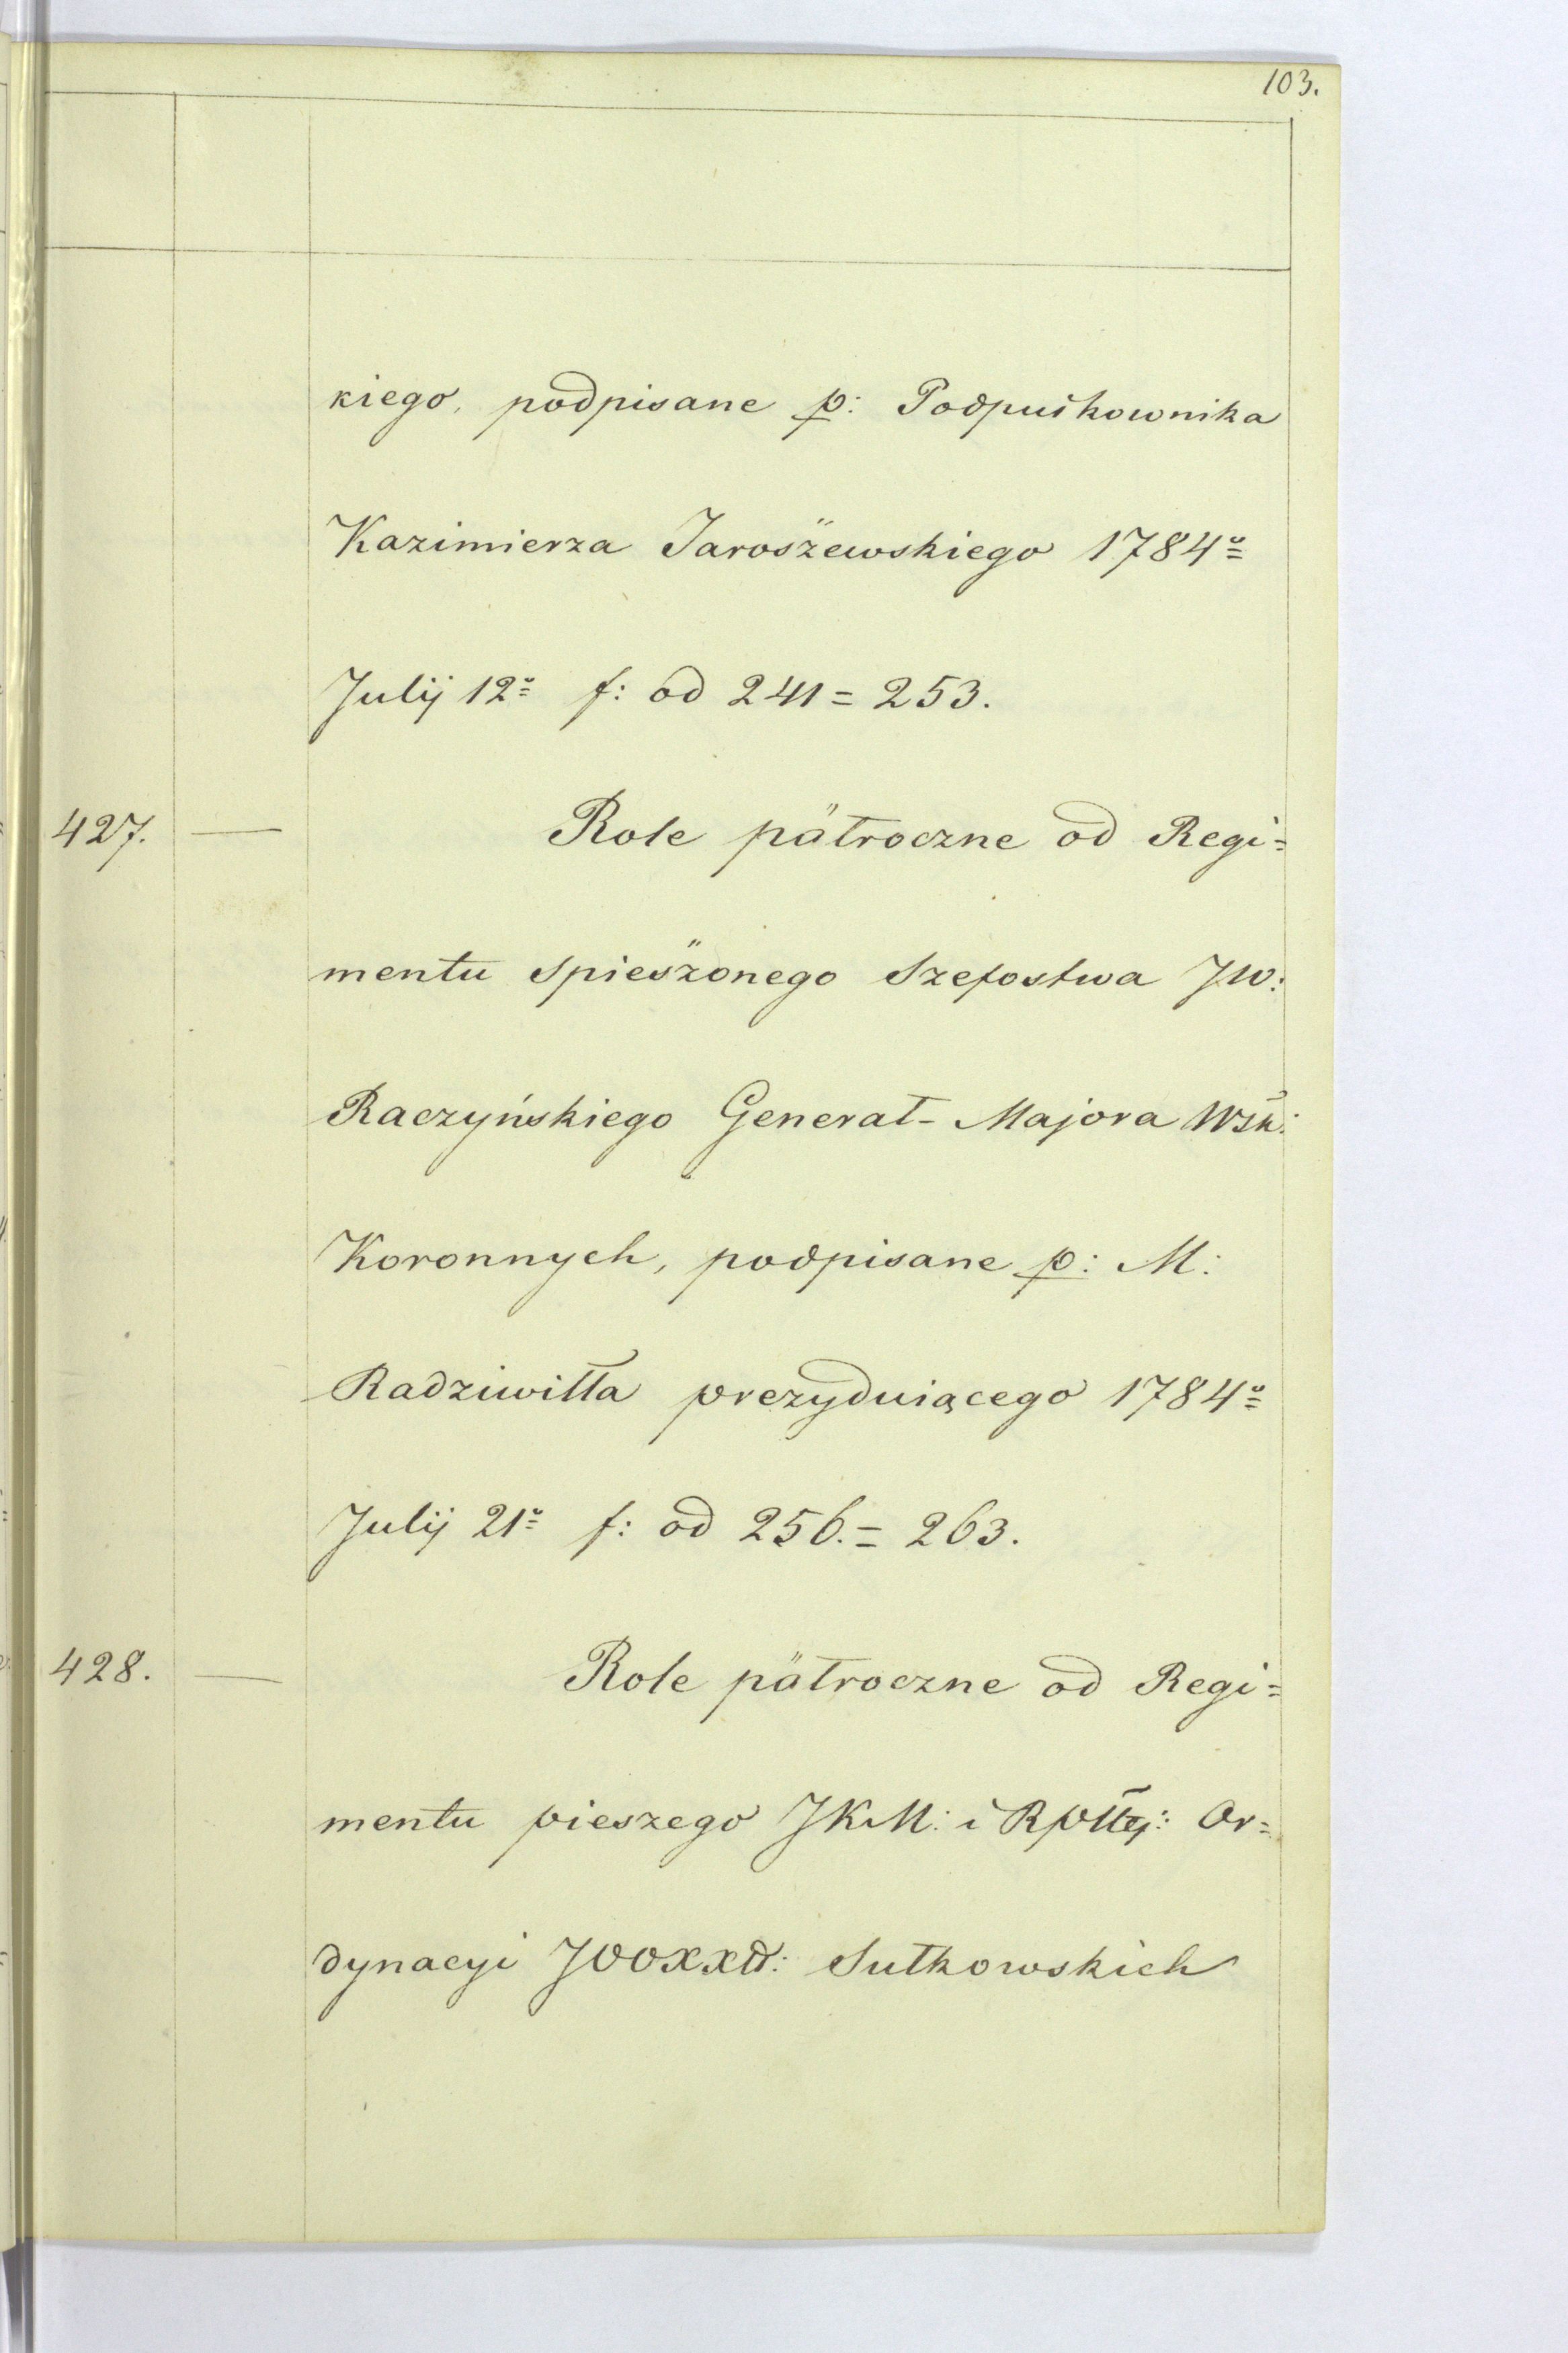 103.
kiego, podpisane p: Podpułkownika
Kazimierza Jaroszewskiego 1784º
Julij 12º f: od 241 = 253.
427. — Role pułroczne od Regi=
mentu Spieszonego Szefostwa JW:
Raczyńskiego Generał-Majora Wsk:
Koronnych, podpisane p: M:
Radziwiłła prezyduiącego 1784º
Julij 21º f: od 256. = 263.
428. — Role pułroczne od Regi=
mentu pieszego JKM: i Rpłtej: Or=
dynacyi JOOXX: Sułkowskich